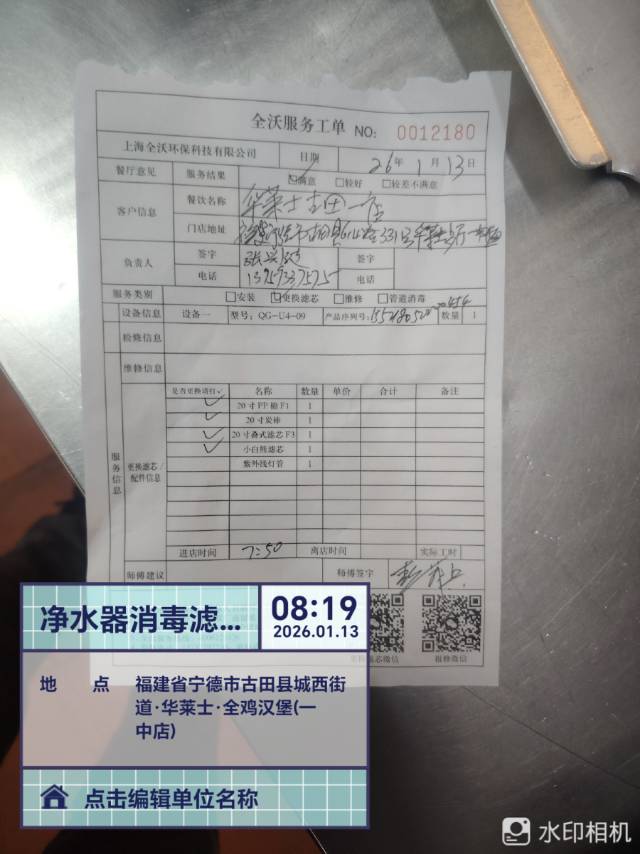 全沃服务工单 NO: 0012180
上海全沃环保科技有限公司 日期 26年1月13日
餐厅意见 服务结果 ☑满意 □较好 □较差不满意
客户信息 餐饮名称 华莱士古田一店
门店地址
负责人 签字 签字
电话 电话
服务类别 □安装 ☑更换滤芯 □维修 □管道消毒
设备信息 设备一 型号: QG-U4-09 产品序列号: 数量 1
检修信息
维修信息
服务信息 更换滤芯/配件信息
是否更换请打√ 名称 数量 单价 合计 备注
√ 20寸PP棉F1 1
√ 20寸炭棒 1
√ 20寸叠式滤芯F3 1
√ 小白熊滤芯 1
紫外线灯管 1
进店时间 7:50 离店时间 实际工时
师傅建议 师傅签字
报修微信
净水器消毒滤... 08:19
2026.01.13
地 点 福建省宁德市古田县城西街
道·华莱士·全鸡汉堡(一
中店)
点击编辑单位名称
水印相机